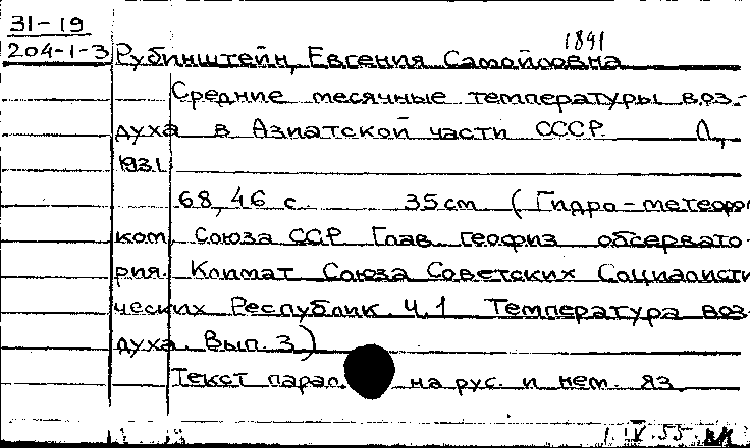 31-19
204-1-3
1891
Рубинштейн, Евгения Самойловна
Средние месячные температуры воз-
духа в Азиатской части СССР. Л.,
1931.
68, 46 с. 35 cm (Гидро-метеоро
ком. Союза ССР Глав. геофиз обсервато-
рия. Климат Союза Советских Социалисти
ческих Республик. Ч.1 Температура воз-
духа. Вып. 3)
Текст парал. на рус. и нем. яз.
1 IV 55